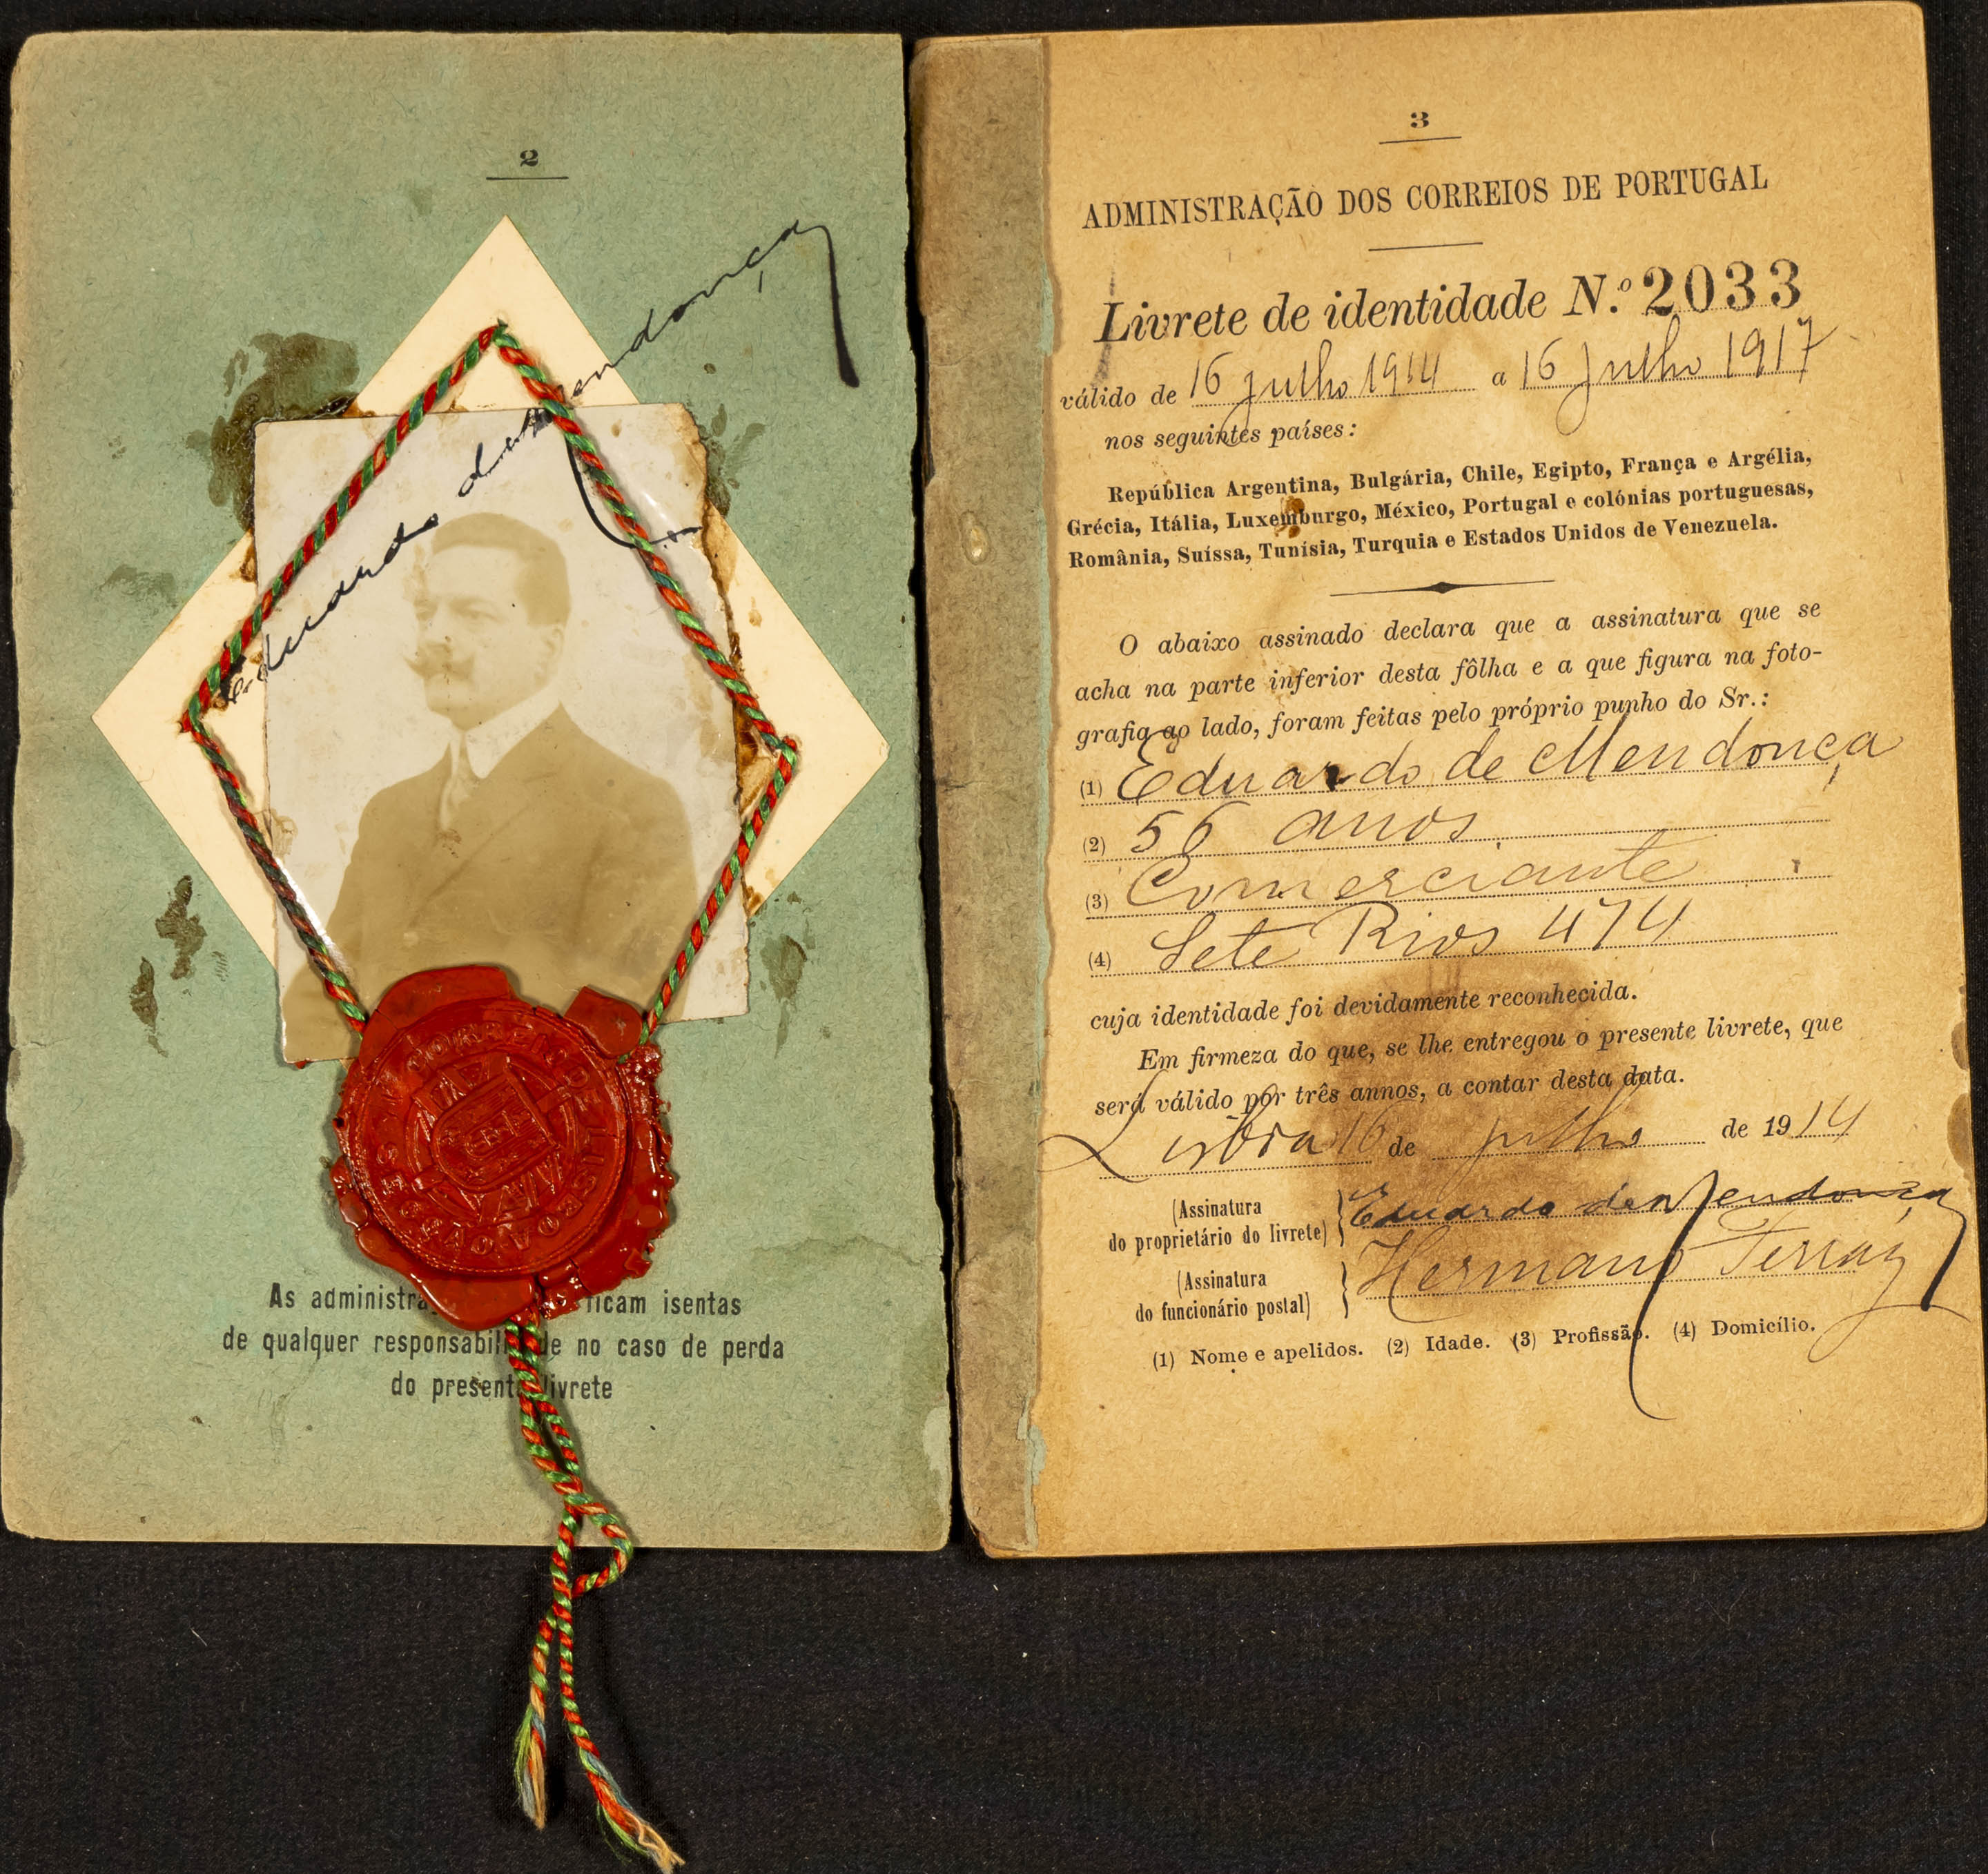 2
Eduardo de Mendonça
CORREIO DE LISBOA
As administra ficam isentas
de qualquer responsabili de no caso de perda
do present livrete
3
ADMINISTRAÇÃO DOS CORREIOS DE PORTUGAL
Livrete de identidade N.º 2033
válido de 16 julho 1914 a 16 Julho 1917
nos seguintes países:
República Argentina, Bulgária, Chile, Egipto, França e Argélia,
Grécia, Itália, Luxemburgo, México, Portugal e colónias portuguesas,
România, Suíssa, Tunísia, Turquia e Estados Unidos de Venezuela.
O abaixo assinado declara que a assinatura que se
acha na parte inferior desta fôlha e a que figura na foto-
grafia ao lado, foram feitas pelo próprio punho do Sr.:
(1) Eduardo de Mendonça
(2) 56 anos
(3) Comerciante
(4) Sete Rios 474
cuja identidade foi devidamente reconhecida.
Em firmeza do que, se lhe entregou o presente livrete, que
será válido por três annos, a contar desta data.
Lisboa 16 de julho de 1914
(Assinatura
do proprietário do livrete) Eduardo de Mendonça
(Assinatura
do funcionário postal) Hermano Ferraz
(1) Nome e apelidos. (2) Idade. (3) Profissão. (4) Domicílio.